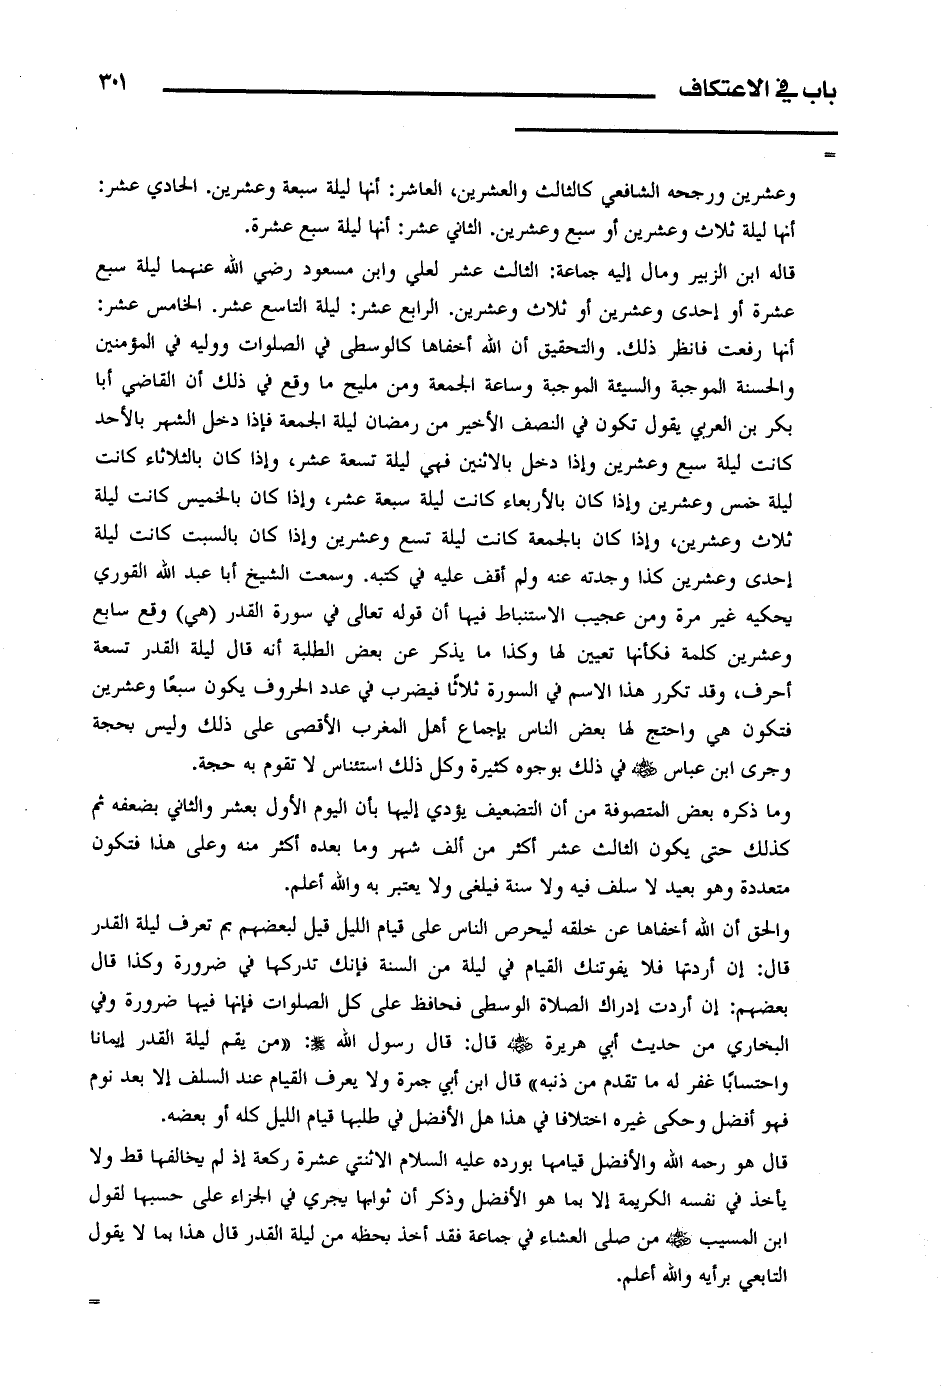 باب في الاعتكاف ٣٠١
=
وعشرين ورجحه الشافعي كالثالث والعشرين، العاشر: أنها ليلة سبعة وعشرين. الحادي عشر:
أنها ليلة ثلاث وعشرين أو سبع وعشرين. الثاني عشر: أنها ليلة سبع عشرة.
قاله ابن الزبير ومال إليه جماعة: الثالث عشر لعلي وابن مسعود رضي الله عنهما ليلة سبع
عشرة أو إحدى وعشرين أو ثلاث وعشرين. الرابع عشر: ليلة التاسع عشر. الخامس عشر:
أنها رفعت فانظر ذلك. والتحقيق أن الله أخفاها كالوسطى في الصلوات ووليه في المؤمنين
والحسنة الموجبة والسيئة الموجبة وساعة الجمعة ومن مليح ما وقع في ذلك أن القاضي أبا
بكر بن العربي يقول تكون في النصف الأخير من رمضان ليلة الجمعة فإذا دخل الشهر بالأحد
كانت ليلة سبع وعشرين وإذا دخل بالاثنين فهي ليلة تسعة عشر، وإذا كان بالثلاثاء كانت
ليلة خمس وعشرين وإذا كان بالأربعاء كانت ليلة سبعة عشر، وإذا كان بالخميس كانت ليلة
ثلاث وعشرين، وإذا كان بالجمعة كانت ليلة تسع وعشرين وإذا كان بالسبت كانت ليلة
إحدى وعشرين كذا وجدته عنه ولم أقف عليه في كتبه. وسمعت الشيخ أبا عبد الله القوري
يحكيه غير مرة ومن عجيب الاستنباط فيها أن قوله تعالى في سورة القدر (هي) وقع سابع
وعشرين كلمة فكأنها تعيين لها وكذا ما يذكر عن بعض الطلبة أنه قال ليلة القدر تسعة
أحرف، وقد تكرر هذا الاسم في السورة ثلاثًا فيضرب في عدد الحروف يكون سبعًا وعشرين
فتكون هي واحتج لها بعض الناس بإجماع أهل المغرب الأقصى على ذلك وليس بحجة
وجرى ابن عباس ﵁ في ذلك بوجوه كثيرة وكل ذلك استئناس لا تقوم به حجة.
وما ذكره بعض المتصوفة من أن التضعيف يؤدي إليها بأن اليوم الأول بعشر والثاني بضعفه ثم
كذلك حتى يكون الثالث عشر أكثر من ألف شهر وما بعده أكثر منه وعلى هذا فتكون
متعددة وهو بعيد لا سلف فيه ولا سنة فيلغى ولا يعتبر به والله أعلم.
والحق أن الله أخفاها عن خلقه ليحرص الناس على قيام الليل قيل لبعضهم بم تعرف ليلة القدر
قال: إن أردتها فلا يفوتنك القيام في ليلة من السنة فإنك تدركها في ضرورة وكذا قال
بعضهم: إن أردت إدراك الصلاة الوسطى فحافظ على كل الصلوات فإنها فيها ضرورة وفي
البخاري من حديث أبي هريرة ﵁ قال: قال رسول الله ﷺ: «من يقم ليلة القدر إيمانا
واحتسابًا غفر له ما تقدم من ذنبه» قال ابن أبي جمرة ولا يعرف القيام عند السلف إلا بعد نوم
فهو أفضل وحكى غيره اختلافا في هذا هل الأفضل في طلبها قيام الليل كله أو بعضه.
قال هو رحمه الله والأفضل قيامها بورده عليه السلام الاثنتي عشرة ركعة إذ لم يخالفها قط ولا
يأخذ في نفسه الكريمة إلا بما هو الأفضل وذكر أن ثوابها يجري في الجزاء على حسبها لقول
ابن المسيب ﵁ من صلى العشاء في جماعة فقد أخذ بحظه من ليلة القدر قال هذا بما لا يقول
التابعي برأيه والله أعلم.
=